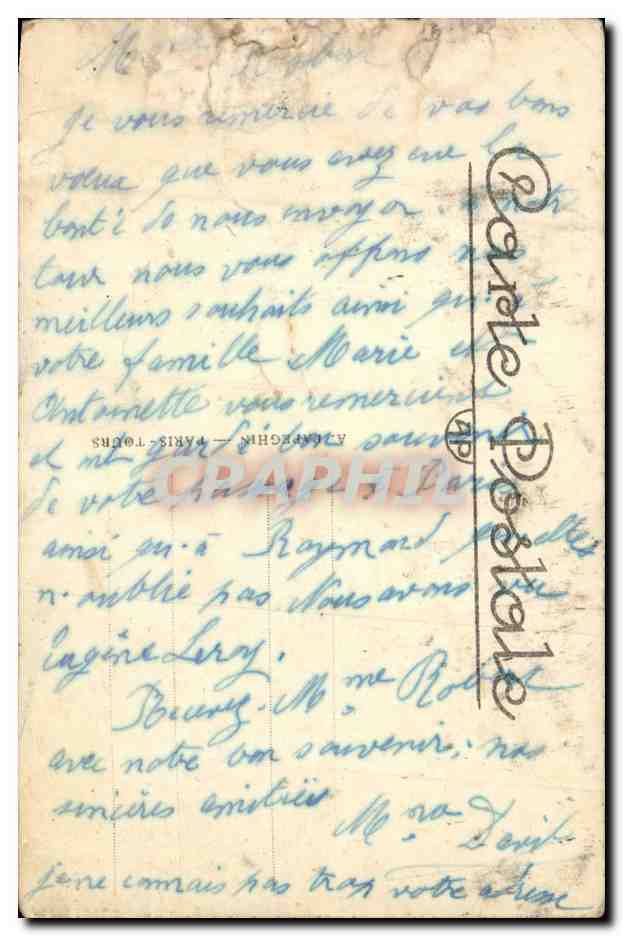 Mme Robert
je vous remercie de vos bons
voeux que vous avez eue la
bonté de nous envoyer.
tour nous vous offrons nos
meilleurs souhaits ainsi qu'à
votre famille Marie et
Antoinette vous remercient
et ont gardé bon souvenir
de votre à Paris
ainsi qu-à Raymond
n-oublié pas Nous avons vu
Eugène Leroy.
Recevez. Mme Robert
avec notre bon souvenir, nos
sincères amitiés
Mme David
je ne connais pas trop votre adresse
Carte Postale
AP
A. PAPEGHIN — PARIS-TOURS
CPAPHIL